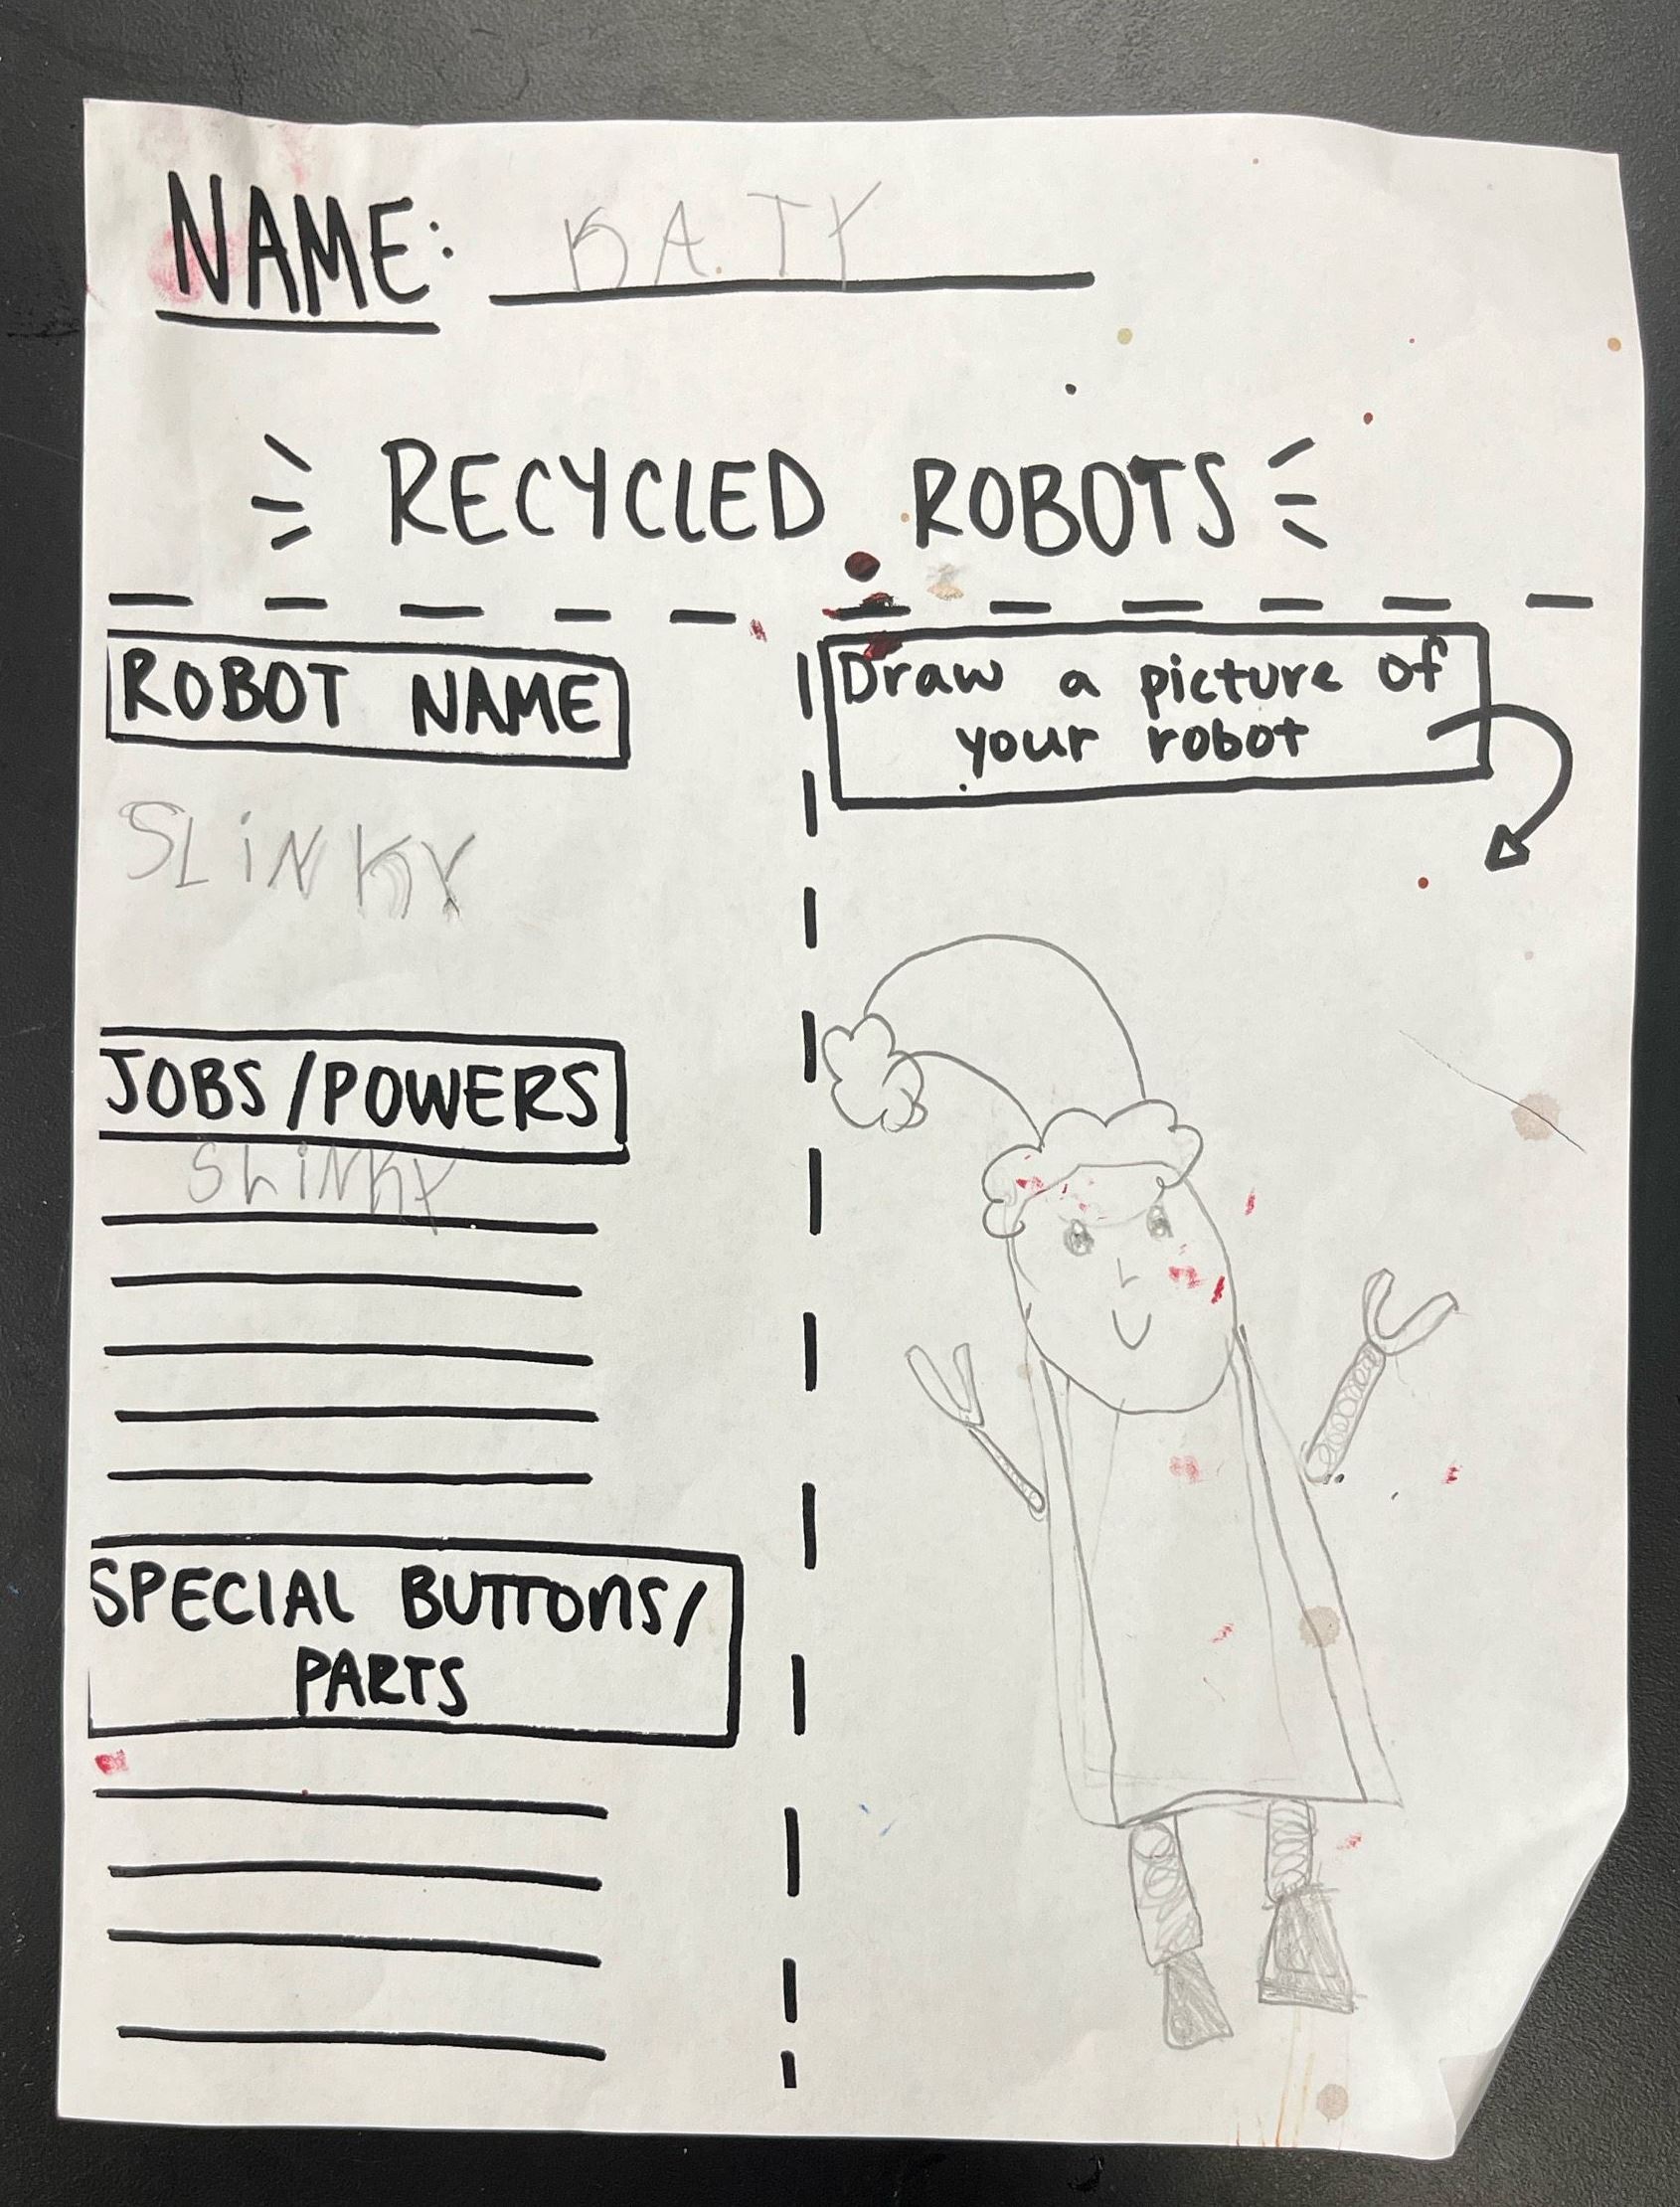 NAME: KATY
RECYCLED ROBOTS
ROBOT NAME
SLiNKY
JOBS/POWERS
SLiNKY
SPECIAL BUTTONS/
PARTS
Draw a picture of
your robot